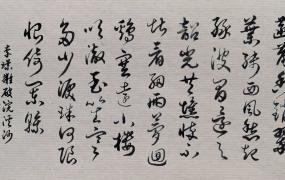 菡萏香銷翠
葉殘西風愁起
綠波間還與
韶光共憔悴不
堪看細雨夢回
鷄塞遠小樓
吹徹玉笙寒
多少淚珠何限
恨倚闌干
李璟攤破浣溪沙